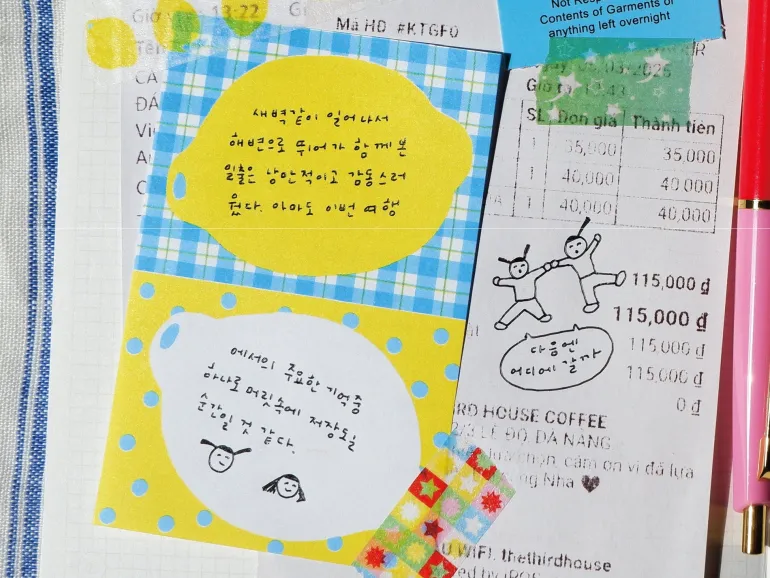 Giờ vào: 13:22
Mã HĐ #KTGF0
Contents of Garments or
anything left overnight
SL Đơn giá Thành tiền
1 35,000 35,000
1 40,000 40,000
1 40,000 40,000
새벽같이 일어나서
해변으로 뛰어가 함께 본
일출은 낭만적이고 감동스러
웠다. 아마도 이번 여행
115,000 đ
115,000 đ
115,000 đ
115,000 đ
0 đ
다음엔
어디에 갈까
에서의 주요한 기억 중
하나로 머릿속에 저장될
순간일 것 같다.
IRD HOUSE COFFEE
2/3 LÊ ĐỘ, ĐÀ NẴNG
chọn, cảm ơn vì đã lựa
Nha
U WIFI: thethirdhouse